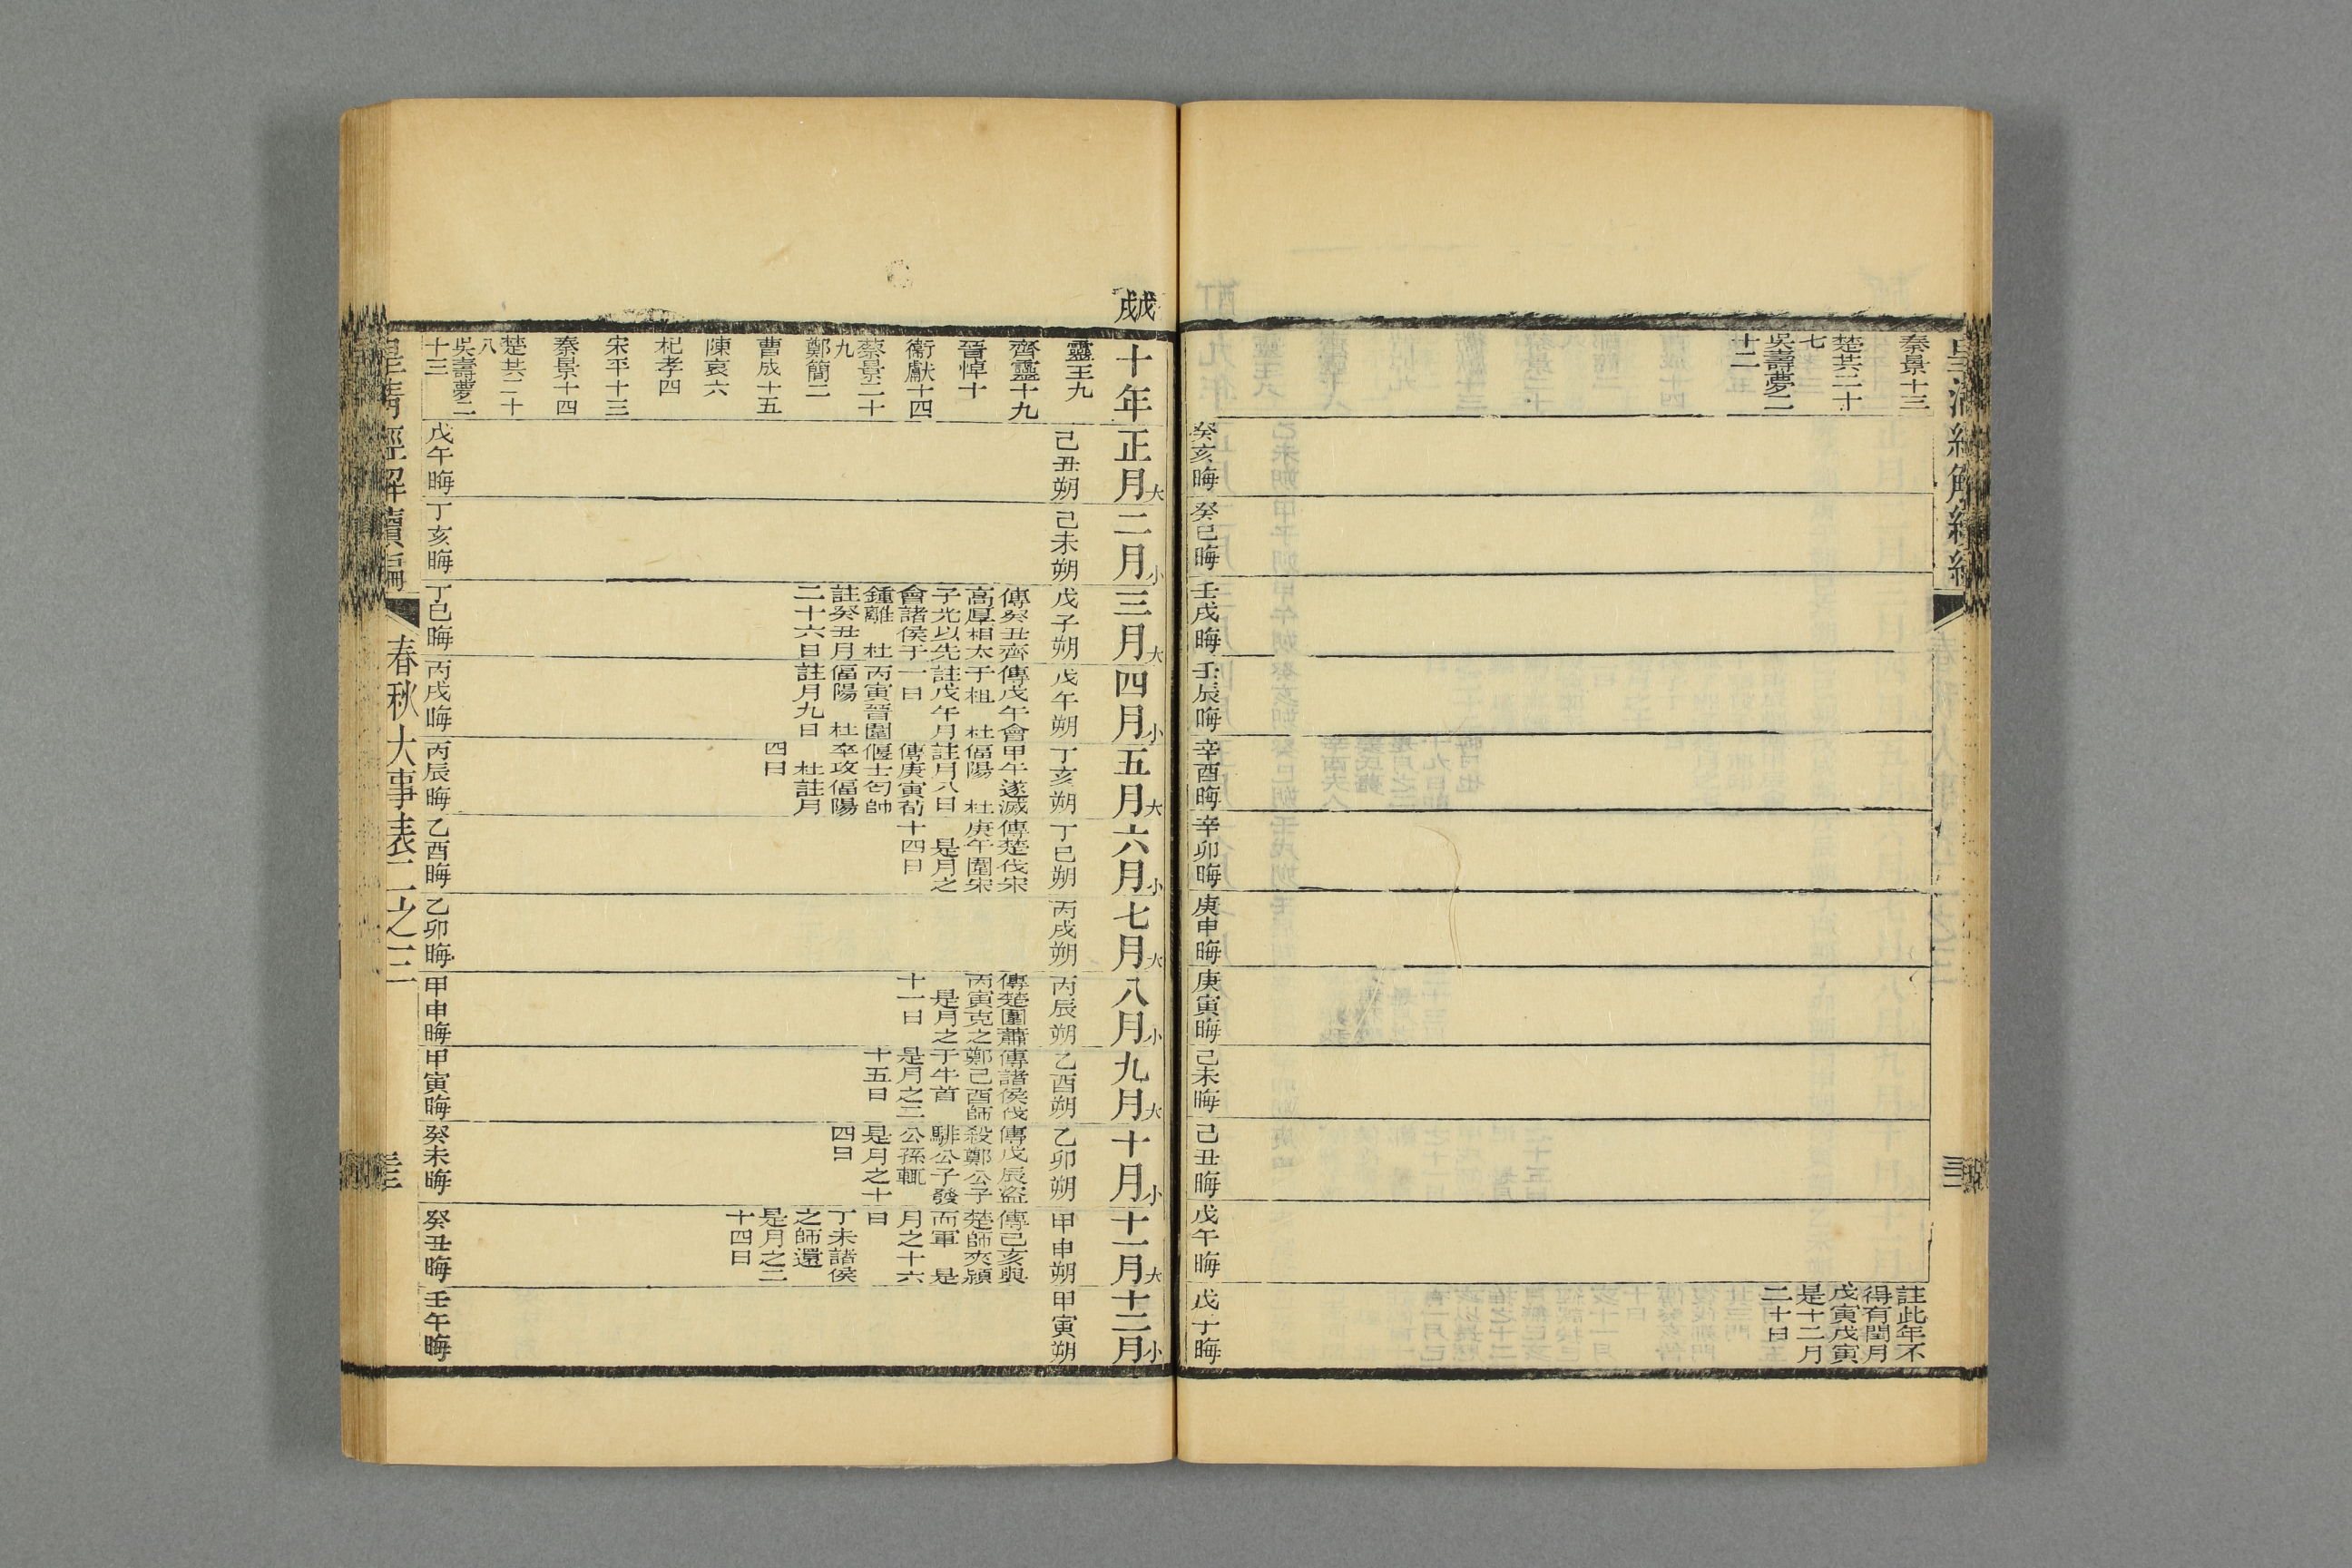 秦景十三
楚共二十
七
吳壽夢二
十二
註此年不
得有閏月
戊寅戊寅
是十二月
二十日
癸亥晦
癸巳晦
壬戌晦
壬辰晦
辛酉晦
辛卯晦
庚申晦
庚寅晦
己未晦
己丑晦
戊午晦
戊丁晦
十年
正月大
二月小
三月大
四月小
五月大
六月小
七月大
八月小
九月大
十月小
十一月大
十二月小
靈王九
齊靈十九
晉悼十
衞獻十四
蔡景二十
九
鄭簡二
曹成十五
陳哀六
杞孝四
宋平十三
秦景十四
楚共二十
八
吳壽夢二
十三
己丑朔
戊午晦
己未朔
丁亥晦
戊子朔
傳癸丑齊
高厚相太
子光以先
會諸侯于
鍾離　杜
註癸丑月
二十六日
丁巳晦
戊午朔
傳戊午會
于柤　杜
註戊午月
一日
丙寅晉圍
偪陽　杜
註月九日
丙戌晦
丁亥朔
甲午遂滅
偪陽　杜
註月八日
傳庚寅荀
偃士匄帥
卒攻偪陽
杜註月
四日
丙辰晦
丁巳朔
傳楚伐宋
庚午圍宋
是月之
十四日
乙酉晦
丙戌朔
乙卯晦
丙辰朔
傳楚圍蕭
丙寅克之
是月之
十一日
甲申晦
乙酉朔
傳諸侯伐
鄭己酉師
于牛首
是月之二
十五日
甲寅晦
乙卯朔
傳戊辰盜
殺鄭公子
騑公子發
公孫輒
是月之十
四日
癸未晦
甲申朔
傳己亥與
楚師夾潁
而軍　是
月之十六
日
丁未諸侯
之師還
是月之二
十四日
癸丑晦
甲寅朔
壬午晦
皇清經解續編
春秋大事表二之三